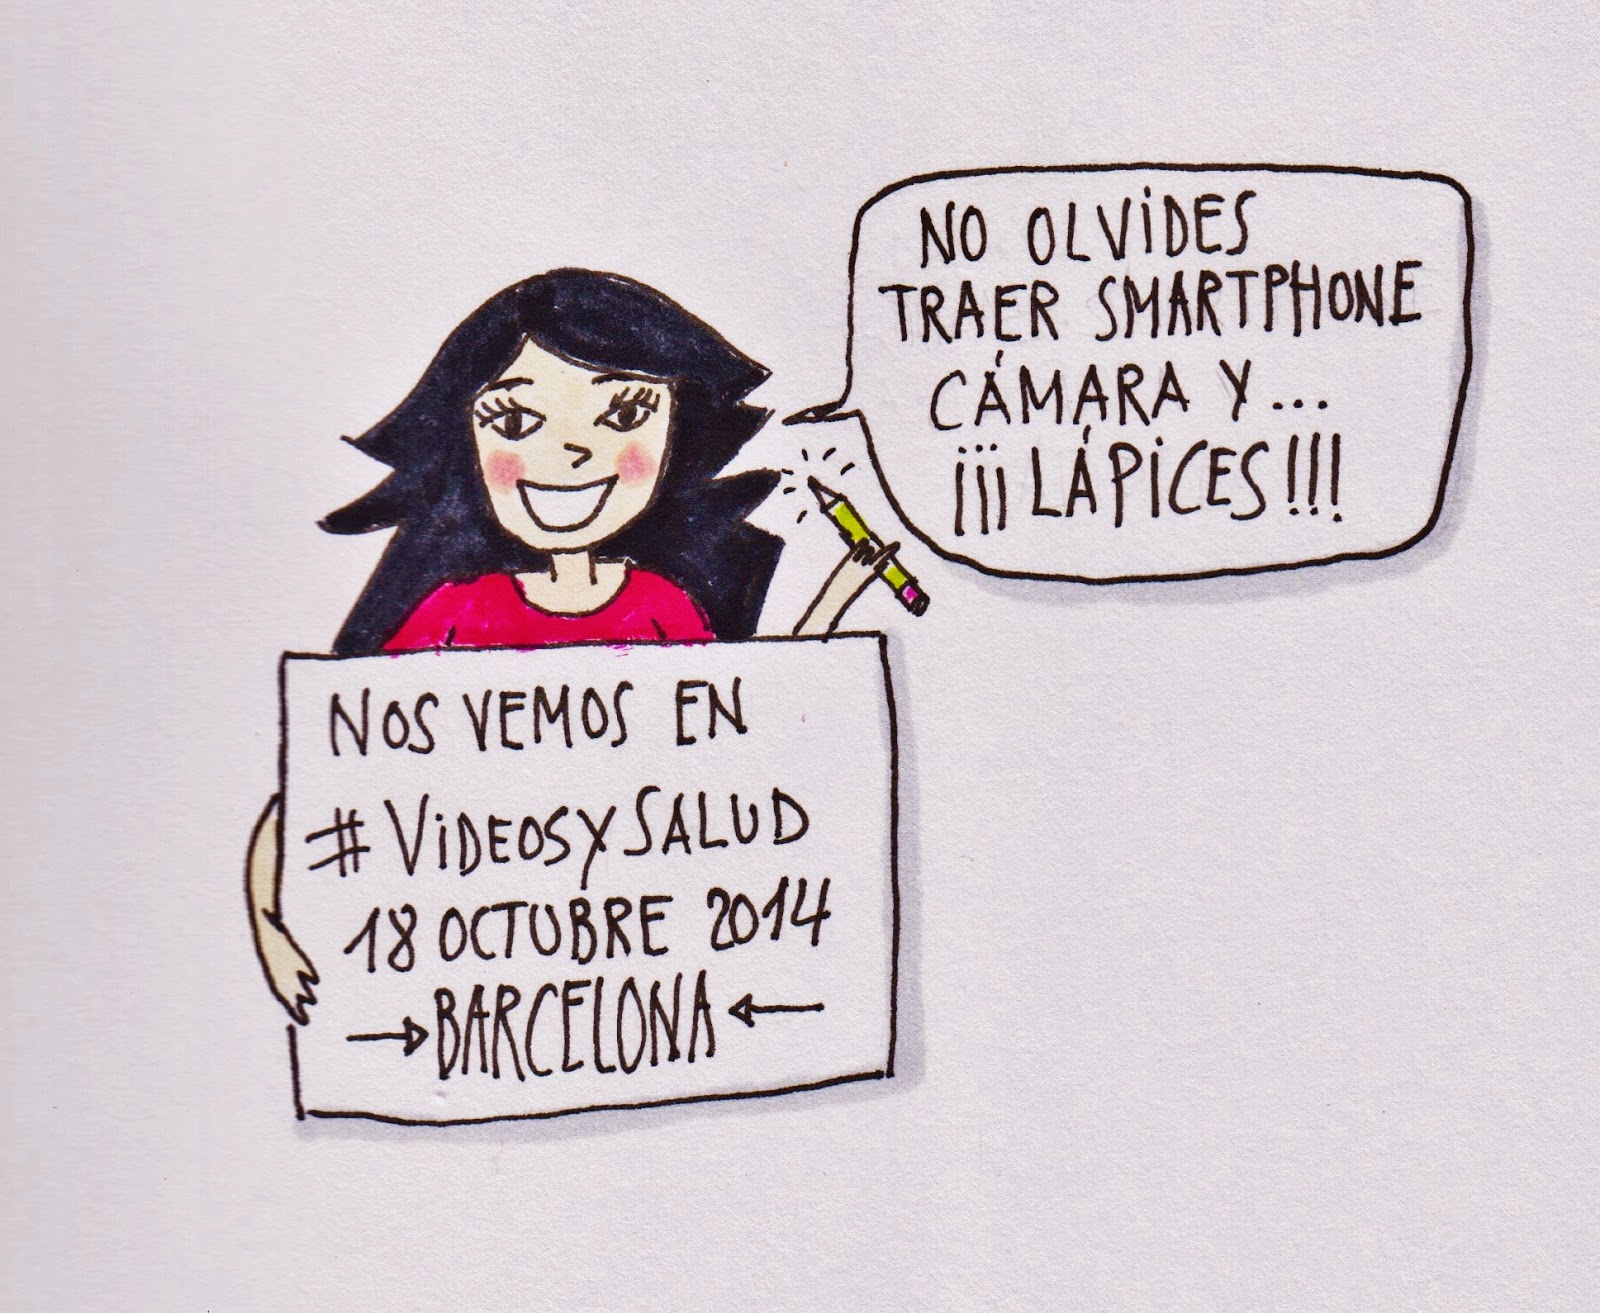 NO OLVIDES
TRAER SMARTPHONE
CÁMARA Y...
¡¡¡LÁPICES!!!
NOS VEMOS EN
#VIDEOSYSALUD
18 OCTUBRE 2014
→BARCELONA←